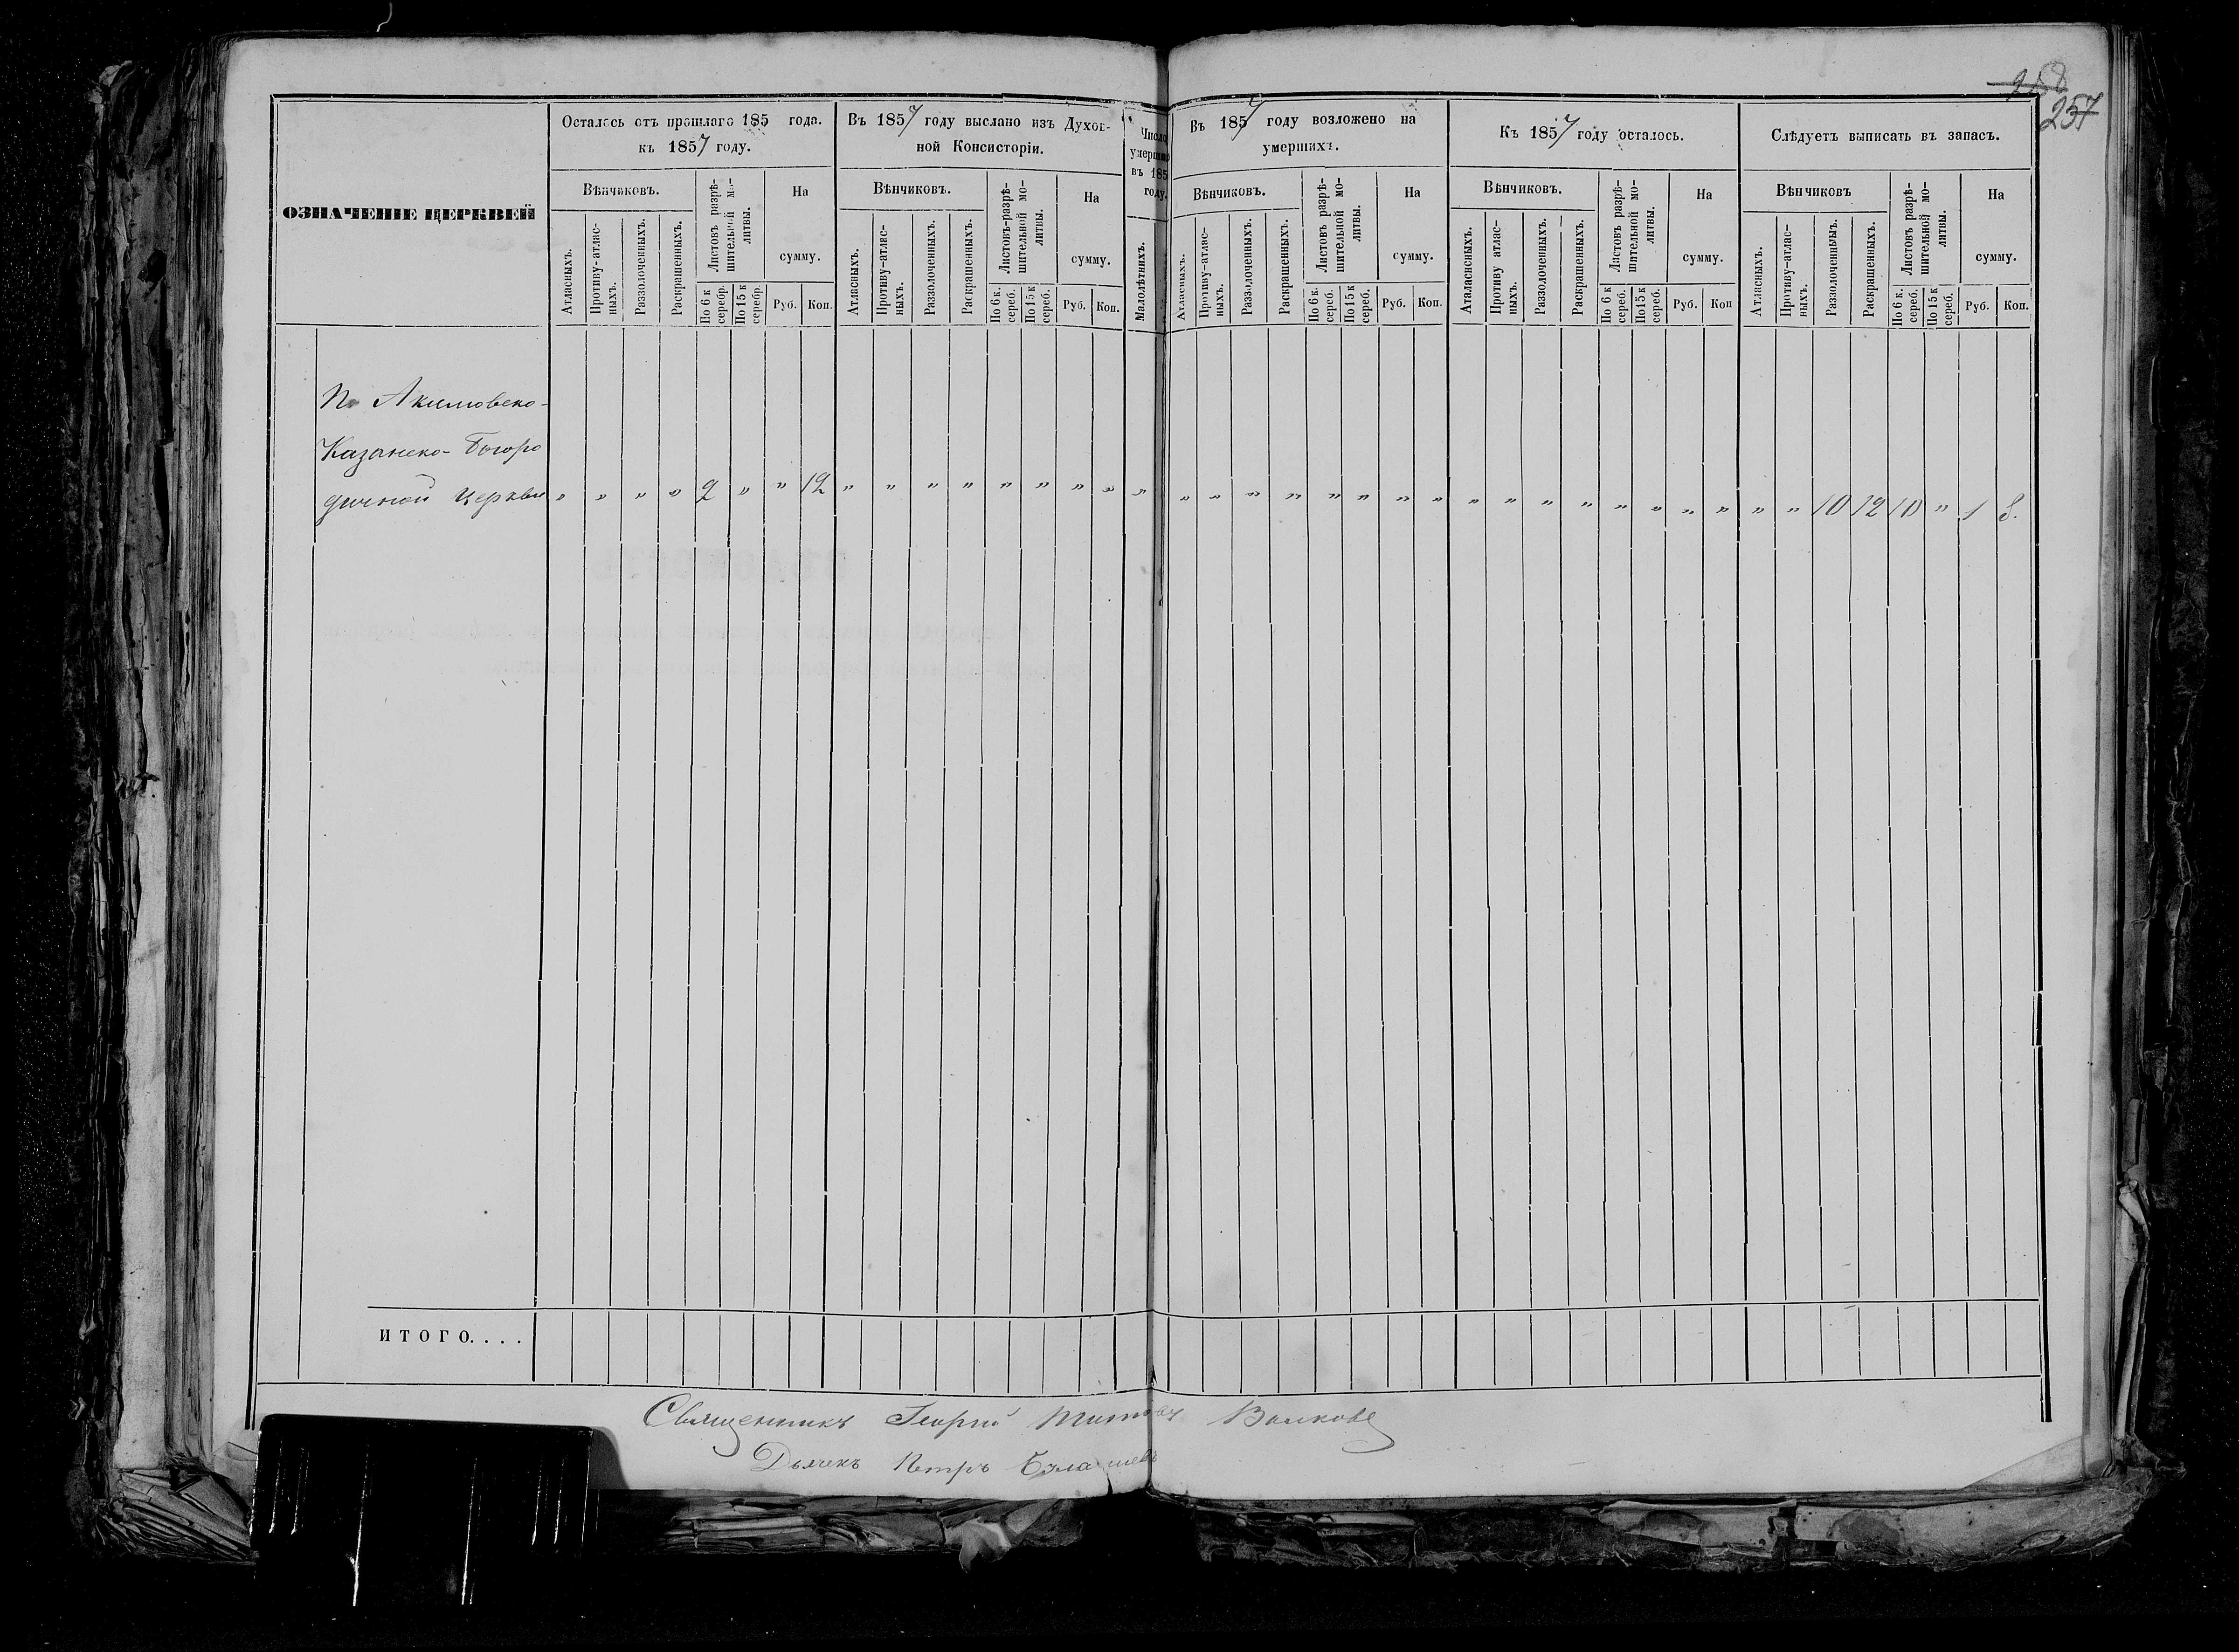 258
257
ОЗНАЧЕНІЕ ЦЕРКВЕЙ
Осталось отъ прошлаго 185 года.
къ 1857 году.
Вѣнчиковъ.
Атласныхъ.
Противу-атлас-
ныхъ.
Раззолоченныхъ.
Раскрашенныхъ.
Листовъ разрѣ-
шительной мо-
литвы.
По 6 к
серебр.
По 15 к
серебр.
На
сумму.
Руб.
Коп.
Въ 1857 году выслано изъ Духов-
ной Консисторіи.
Вѣнчиковъ.
Атласныхъ.
Противу-атлас-
ныхъ.
Раззолоченныхъ.
Раскрашенныхъ.
Листовъ-разрѣ-
шительной мо-
литвы.
По 6 к.
сереб.
По 15 к
сереб.
На
сумму.
Руб.
Коп.
Число
умершихъ
въ 185
году.
Малолѣтнихъ.
Въ 1857 году возложено на
умершихъ.
Вѣнчиковъ.
Атласныхъ.
Противу-атлас-
ныхъ.
Раззолоченныхъ.
Раскрашенныхъ.
Листовъ разрѣ-
шительной мо-
литвы.
По 6 к.
сереб.
По 15 к
сереб.
На
сумму.
Руб.
Коп.
Къ 1857 году осталось.
Вѣнчиковъ.
Аталасисныхъ.
Противу атлас-
ныхъ.
Раззолоченныхъ.
Раскрашенныхъ.
Листовъ разрѣ-
шительной мо-
литвы.
По 6 к
сереб.
По 15 к
сереб.
На
сумму.
Руб.
Коп
Слѣдуетъ выписать въ запасъ.
Вѣнчиковъ
Атласныхъ.
Противу-атлас-
ныхъ.
Раззолоченныхъ.
Раскрашенныхъ.
Листовъ разрѣ-
шительной мо-
литвы.
По 6 к.
сереб.
По 15 к
сереб.
На
сумму.
Руб.
Коп.
По Акимовско-
Казанско-Богоро
дичной церкви " " " " 2 " " 12 " " " " " " " " " " " " " " " " " " " " " " " " " " " 10 12 10 " 1 8.
ИТОГО....
Священникъ Георгій Титовъ Волковъ
Дьячекъ Петръ